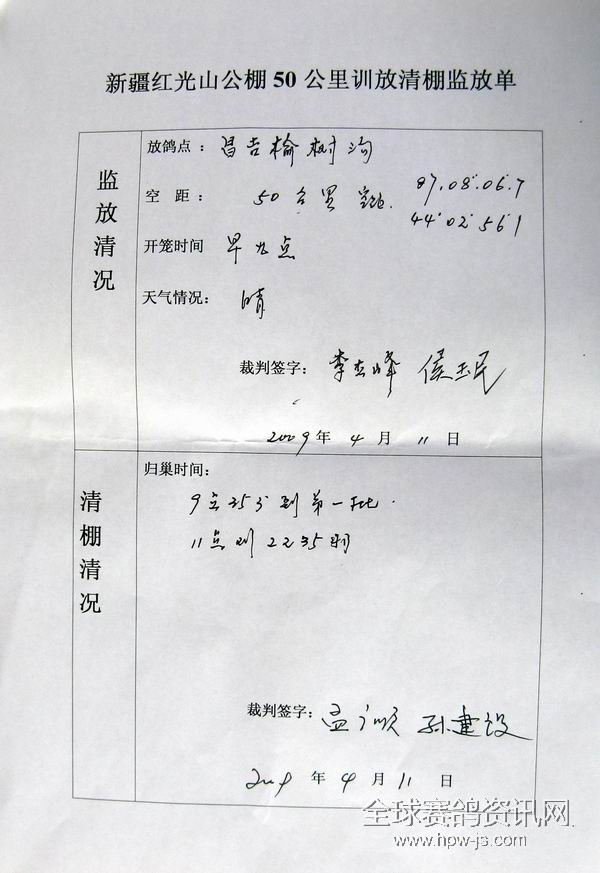 新疆红光山公棚50公里训放清棚监放单
监放情况
放鸽点：昌吉榆树沟
空距：50公里
87.08.06.7
44.02.561
开笼时间 早九点
天气情况：晴
裁判签字：李杰峰 侯玉民
2009年4月11日
清棚情况
归巢时间：
9点35分到第一批.
11点到2235羽
裁判签字：孟广顺 孙建设
2009年4月11日
全球赛鸽资讯网
www.hpw-js.com